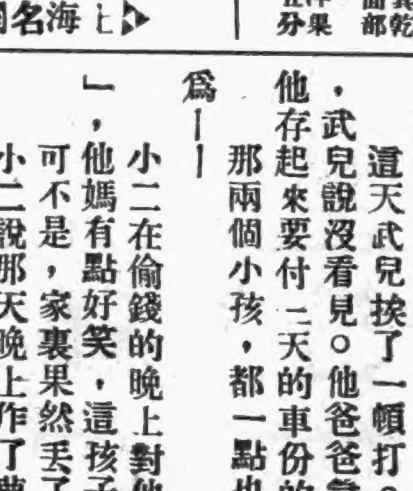 乾
面部
洋果
五分
上海名
這天武兒挨了一頓打。
，武兒說沒看見。他爸爸
他存起來要付二天的車份的
那兩個小孩，都一點也
爲——
小二在偷錢的晚上對他
」，他媽有點好笑，這孩子
可不是，家裏果然丟了
小二說那天晚上作了夢